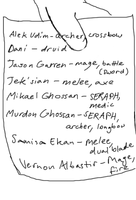 Alek Udim-archer, crossbow
Dani - druid
Jason Garren - mage, battle
(Sword)
Jek'sian - melee, axe
Mikael Ghossan - SERAPH,
medic
Murdon Ghossan - SERAPH,
archer, longbow
Saanisa Ekan - melee,
dual blade
Vernon Albastir - Mage,
fire